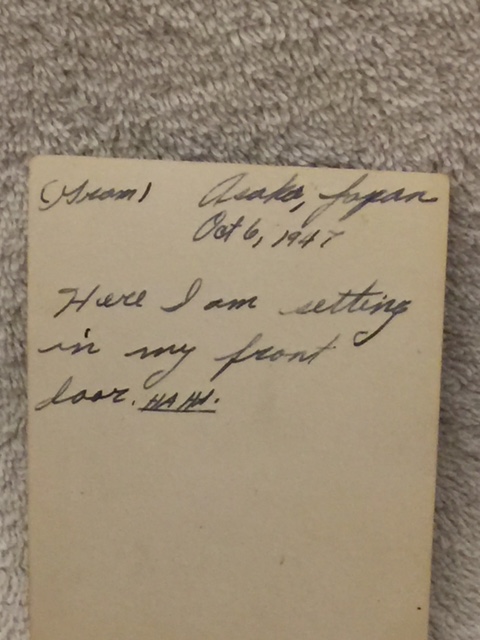 (From) Asaka, Japan
Oct 6, 1947
Here I am setting
in my front
door. HA HA.